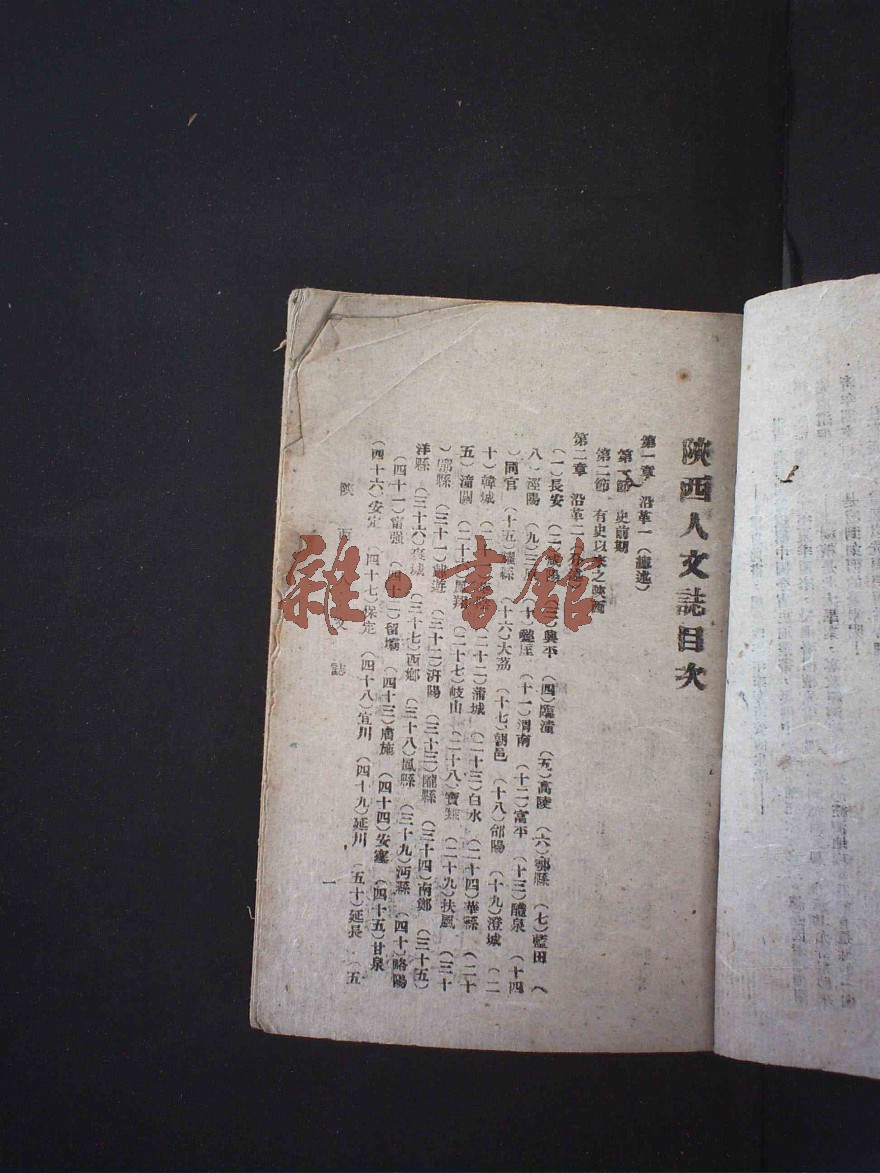 陝西人文誌目次
第一章 沿革一（總述）
第一節 史前期
第二節 有史以來之陝西
第二章 沿革二（分述）
（一）長安 （二）咸陽 （三）興平 （四）臨潼 （五）高陵 （六）鄠縣 （七）藍田 （
八）涇陽 （九）三原 （十）盩厔 （十一）渭南 （十二）富平 （十三）醴泉 （十四
）同官 （十五）耀縣 （十六）大荔 （十七）朝邑 （十八）郃陽 （十九）澄城 （二
十）韓城 （二十一） （二十二）蒲城 （二十三）白水 （二十四）華縣 （二十
五）潼關 （二十六）鳳翔 （二十七）岐山 （二十八）寶雞 （二十九）扶風 （三十
）郿縣 （三十一）麟遊 （三十二）汧陽 （三十三）隴縣 （三十四）南鄭 （三十五）
洋縣 （三十六）褒城 （三十七）西鄉 （三十八）鳳縣 （三十九）沔縣 （四十）略陽
（四十一）甯強 （四十二）留壩 （四十三）膚施 （四十四）安塞 （四十五）甘泉
（四十六）安定 （四十七）保定 （四十八）宜川 （四十九）延川 （五十）延長 （五
陝西人文誌
一
雜·書館